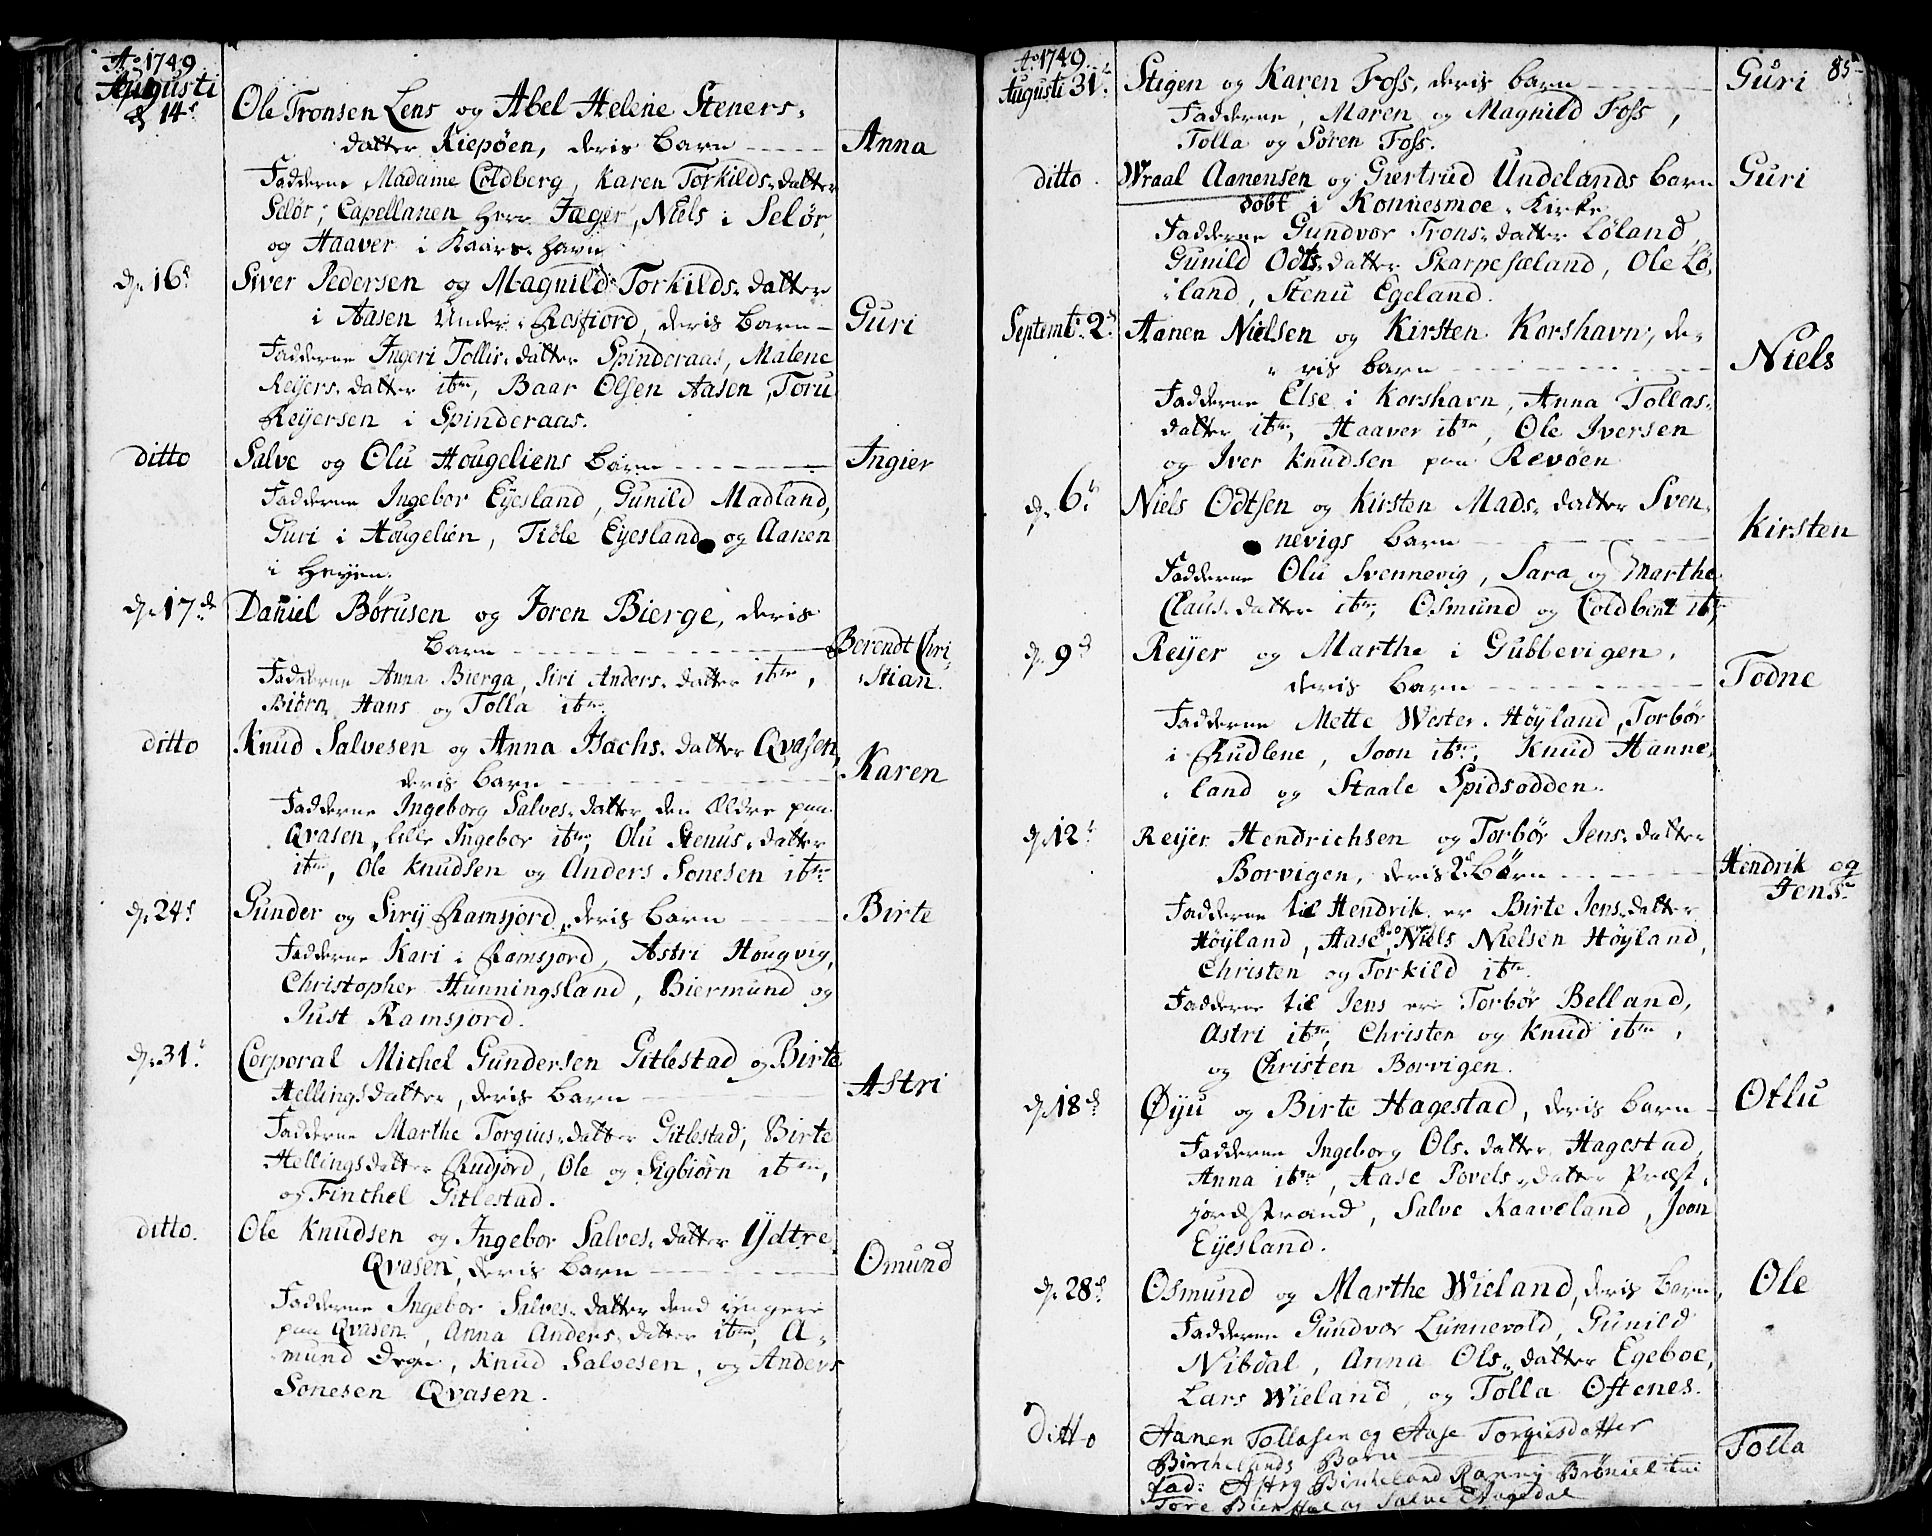 Ao 1749
Augusti
d 14de Ole Tronsen Lens og Abel Helene Steners-
datter Kiepøen, deris barn Anna
Fadderne Madame Coldberg, Karen Torkilds-datter
Selør, Capellanen Herr Jæger, Niels i Selør,
og Haaver i Kaars-havn
d. 16de Siver Pedersen og Magnild Torkilds-datter
i Aasen Under Rosfiord, deris barn Guri
Fadderne Ingeri Tollis-datter Spinderaas, Malene
Reyers-datter itm, Baar Olsen Aasen, Toru
Reyersen i Spinderaas.
ditto Salve og Olu Hougeliens barn Ingier
Fadderne Ingebor Eyesland, Gunild Madland,
Guri i Hougelien, Tiøle Eyesland og Aanen
i Heyen.
d. 17de Daniel Børusen og Joren Bierge, deris
barn Berendt Chri-
stian.
Fadderne Anna Bierga, Siri Anders-datter itm,
Biørn, Hans og Tolla itm
ditto Knud Salvesen og Anna Isachs-datter Qvasen,
deris barn Karen
Fadderne Ingeborg Salves-datter den Ældre paa
Qvasen, lille Ingebor itm, Olu Stenus-datter
itm, Ole Knudsen og Anders Sonesen itm
d. 24de Gunder og Sirij Ramsjord, deris barn Birte
Fadderne Kari i Ramsjord, Astri Hougvig,
Christopher Hunningsland, Biermund og
Just Ramsjord.
d. 31de Corporal Michel Gundersen Gitlestad og Birte
Hellingsdatter, deris barn Astri
Fadderne Marthe Torgius-datter Gitlestad, Birte
Hellingsdatter Rudjord, Ole og Sigbiørn itm,
og Finchel Gitlestad.
ditto. Ole Knudsen og Ingebor Salves-datter Ydtre
Qvasen, deris barn Omund
Fadderne Ingebor Salves-datter dend yngere
paa Qvasen, Anna Anders-datter itm, A-
mund Drge, Knud Salvesen, og Anders
Sonesen Qvasen.
Ao 1749 85
Augusti 31te Stigen og Karen Foss, deris barn Guri
Fadderne, Maren og Magnild Foss,
Tolla og Søren Foss.
ditto. Wraal Aanensen og Giertrud Undelands barn Guri
døbt i Konnesmoe Kirke
Fadderne Gundvor Trons-datter Løland,
Gunild Odts-datter Skarpesæland, Ole Lø-
land, Stenu Egeland.
Septembr. 2den Aanen Nielsen og Kirsten Korshavn, de-
ris barn Niels
Fadderne Else i Korshavn, Anna Tollas-
datter itm, Haaver itm, Ole Iversen
og Iver Knudsen paa Revøen
d. 6te Niels Odtsen og Kirsten Mads-datter Sven-
nevigs barn Kirsten
Fadderne Olu Svennevig, Sara og Marthe
Claus-datter itm, Osmund og Coldbent itm
d. 9de Reyer og Marthe i Gubbevigen,
deris barn Todne
Fadderne Mette Wester-Høyland, Torbør
i Rudlene, Joon itm, Knud Hanne-
land og Staale Spidsodden.
d. 12te Reyer Hendrichsen og Torbør Jens-datter
Borvigen, deris 2de Børn Hendrik og
Jens
Fadderne til Hendrik er Birte Jens-datter
Høyland, Aase, Niels Nielsen Høyland,
Christen og Torkild itm.
Fadderne til Jens ere Torbør Belland,
Astri itm, Christen og Knud itm,
og Christen Borvigen.
d. 18de Øyu og Birte Hagestad, deris barn Otlu
Fadderne Ingeborg Ols-datter Hagestad,
Anna itm, Aase Povels-datter Præst-
jordstrand, Salve Kaaveland, Joon
Eyesland.
d. 28de Osmund og Marthe Wieland, deris barn Ole
Fadderne Gundvor Lunnevold, Gunild
Nibdal, Anna Ols-datter Egeboe,
Lars Wieland, og Tolla Oftenes.
Ditto Aanen Tollasen og Aase Torgiesdatter
Birchelands Barn Tolla
fad: Astry Birkeland Ranny Brøniel
Tore og Salve